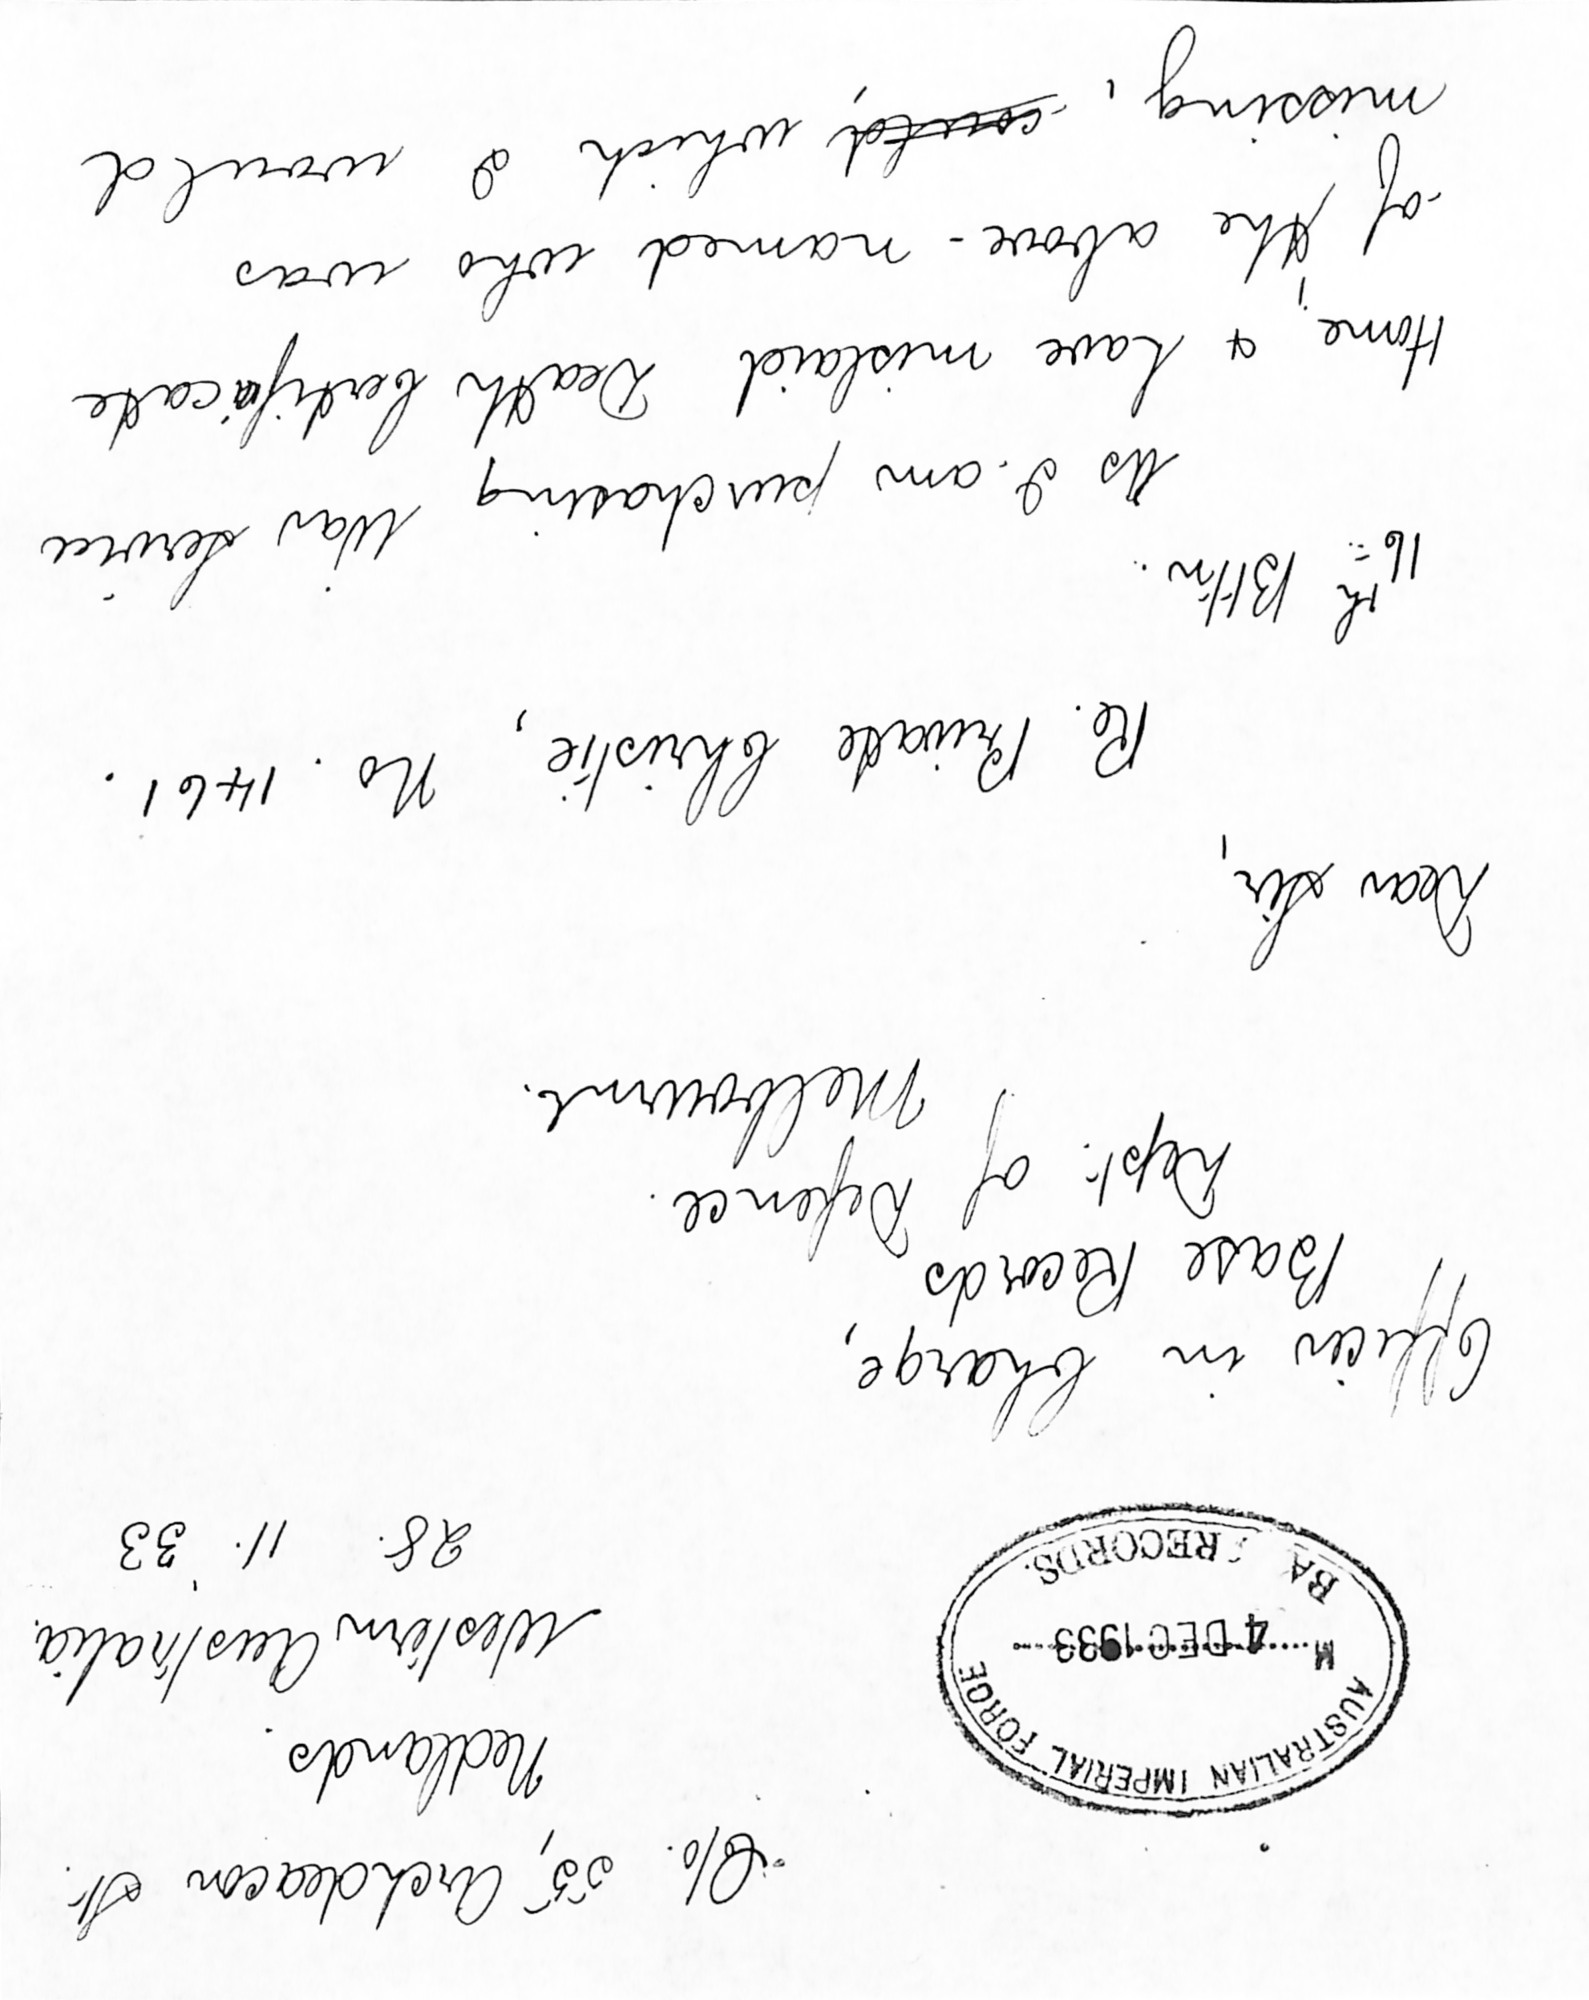 C/o. 55, Archdeacon St.
Nedlands.
Western Australia.
28. 11. '33
AUSTRALIAN IMPERIAL FORCE
M 4 DEC 1933
BA RECORDS.
Officer in Charge,
Base Records
Dept. of Defence.
Melbourne.
Dear Sir,
Re. Private Christie, No. 1461.
16th Bttn.
As I am purchasing War Service
Home, & have mislaid Death Certificate
of the above-named who was
missing, could, which I would